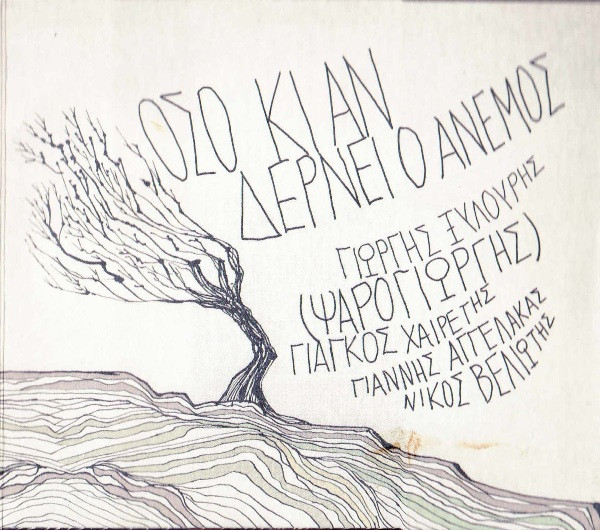 ΟΣΟ ΚΙ ΑΝ
ΔΕΡΝΕΙ Ο ΑΝΕΜΟΣ
ΓΙΩΡΓΗΣ ΞΥΛΟΥΡΗΣ
(ΨΑΡΟΓΙΩΡΓΗΣ)
ΓΙΑΓΚΟΣ ΧΑΙΡΕΤΗΣ
ΓΙΑΝΝΗΣ ΑΓΓΕΛΑΚΑΣ
ΝΙΚΟΣ ΒΕΛΙΩΤΗΣ